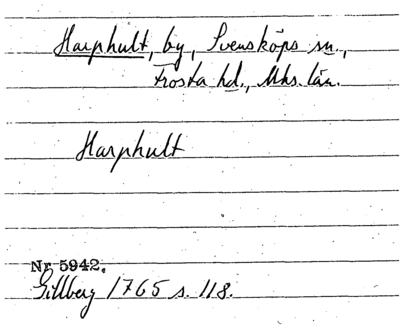 Harphult, by, Svensköps sn.,
Frosta hd., Mhs. län.
Harphult
Nr 5942.
Gillberg 1765 s. 118.